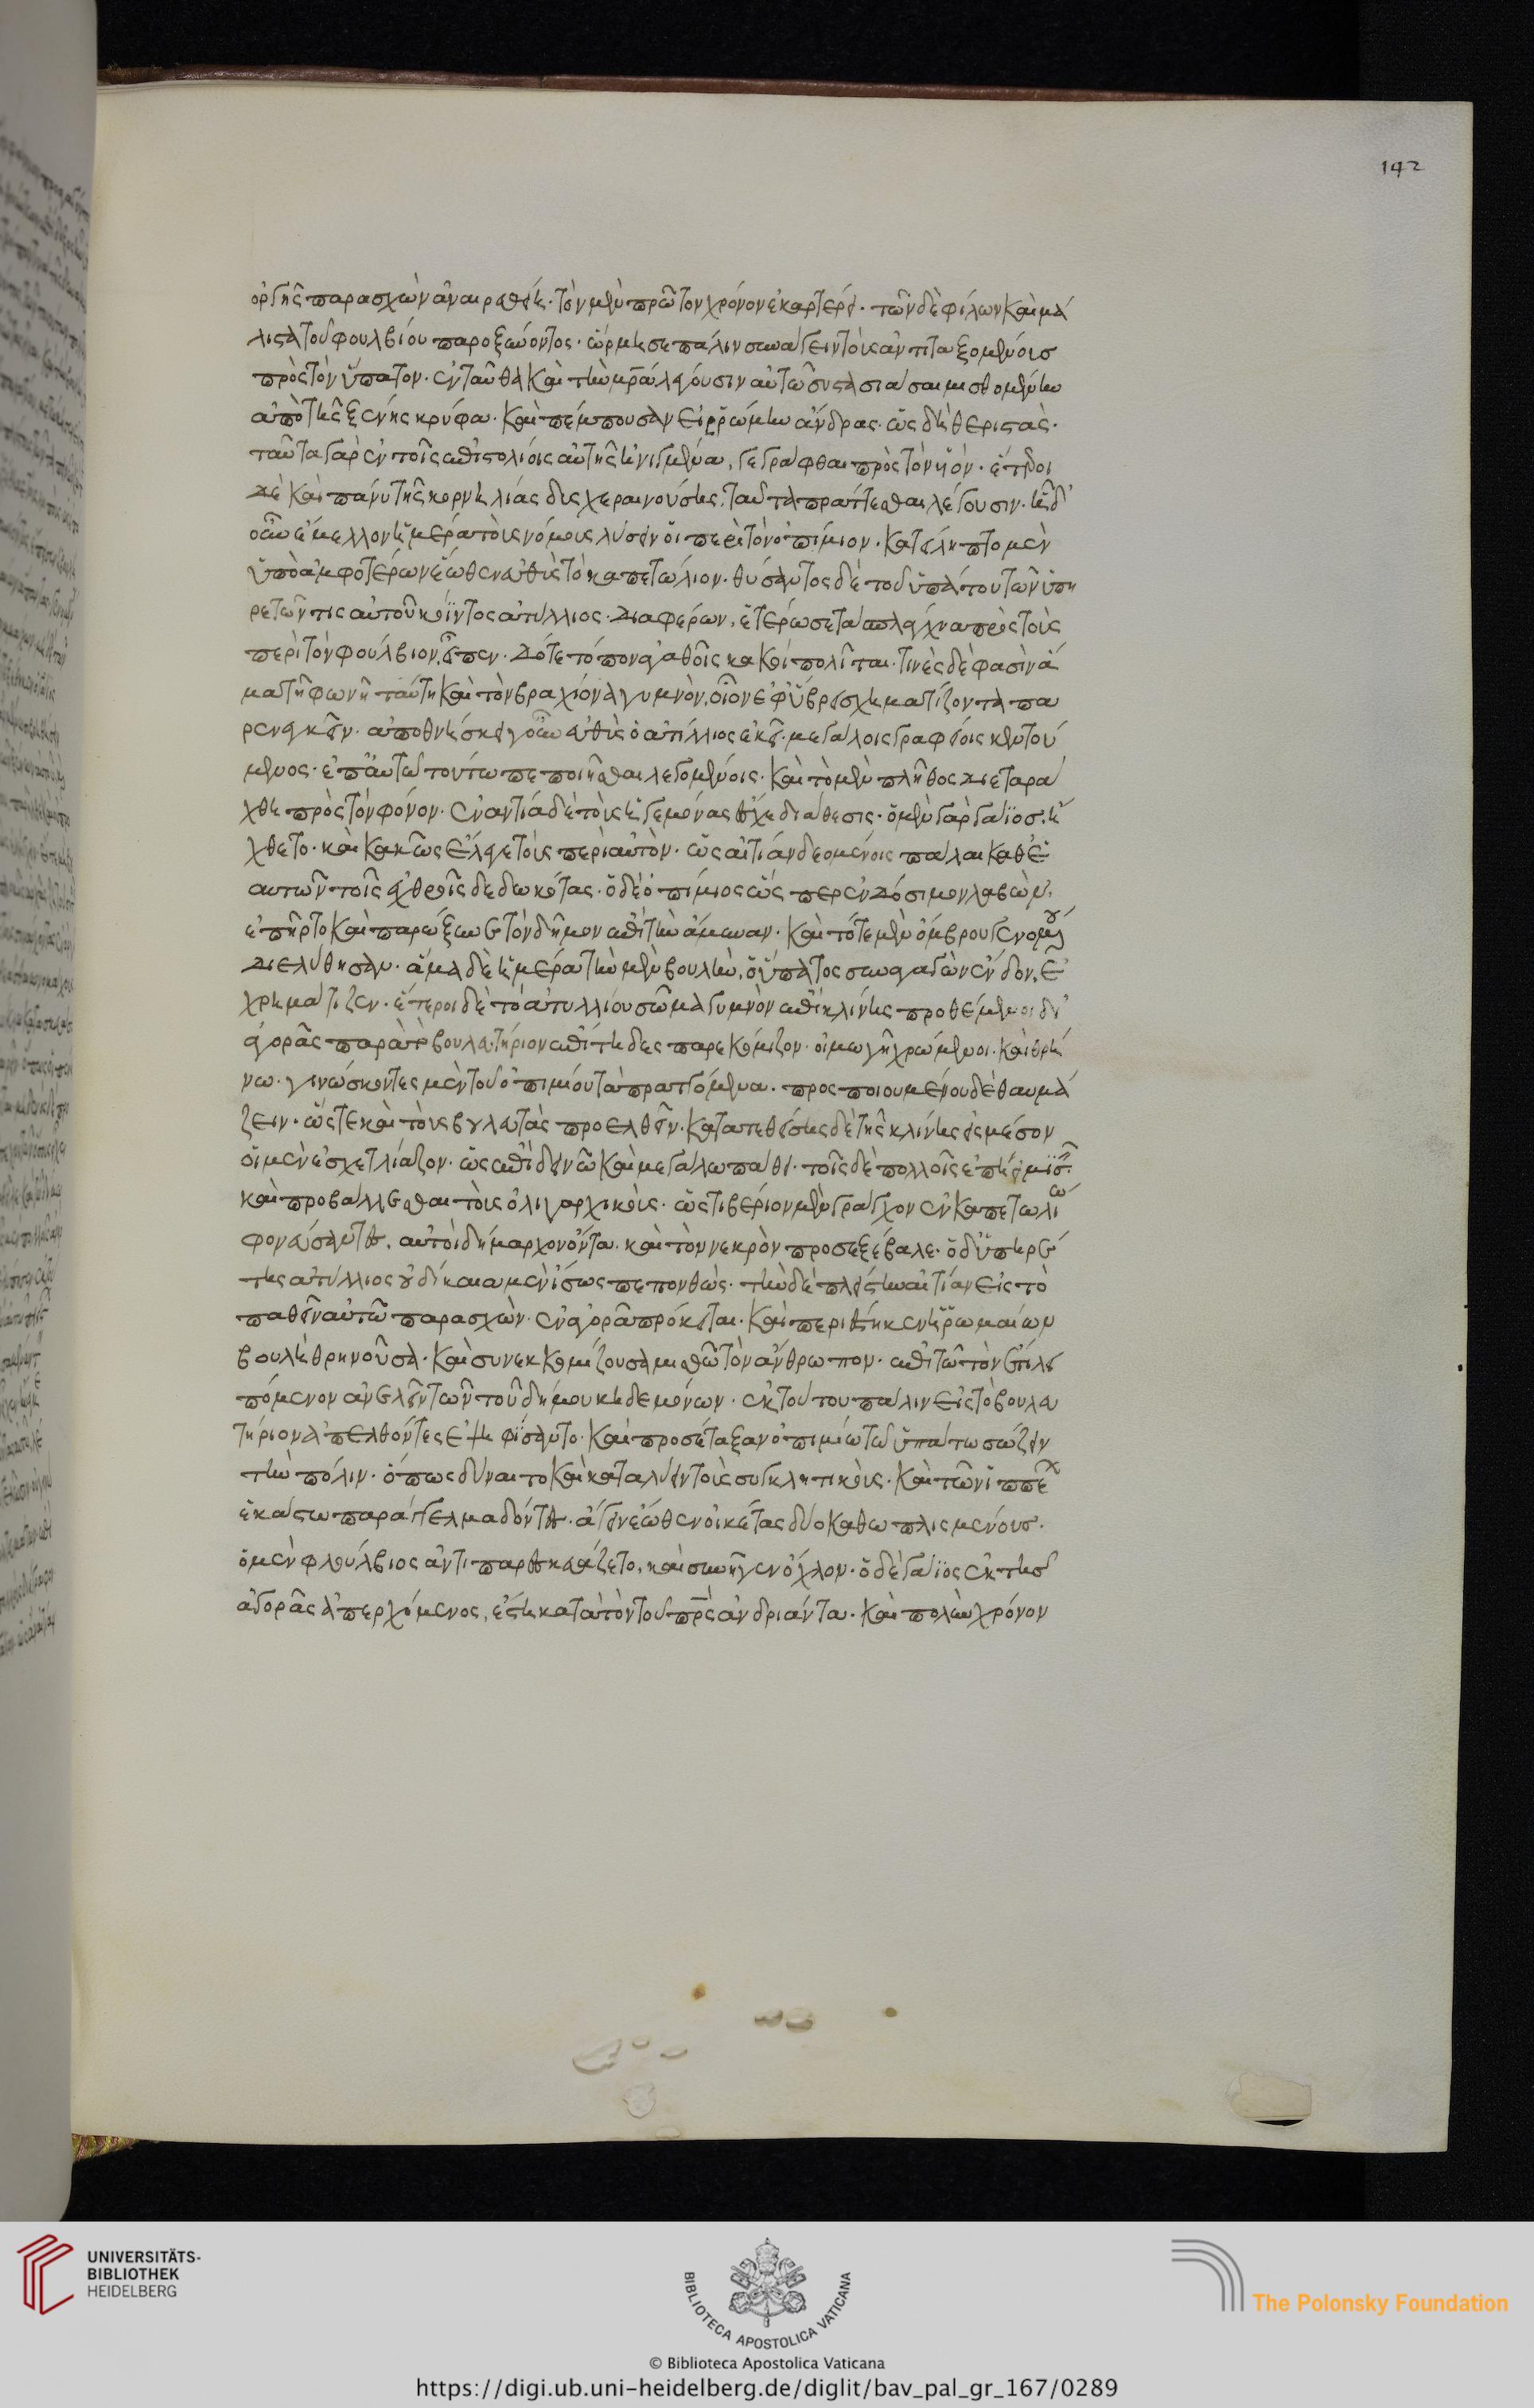 142
ὀργῆς παρασχὼν ἀναιρεθείη. τὸν μὲν πρῶτον χρόνον ἐκαρτέρει. τῶν δὲ φίλων καὶ μά
λιστα τοῦ φουλβίου παροξύνοντος. ὥρμησε πάλιν συνάγειν τοὺς ἀντιταξομένους
πρὸς τὸν ὕπατον. ἐνταῦθα καὶ τὴν μρα λέγουσιν αὐτῶ συστασιάσαι μισθουμένην
ἀπὸ τῆς ξένης κρύφα. καὶ πέμπουσαν εἰς ῥώμην ἄνδρας. ὡς δὴ θεριστὰς.
ταῦτα γὰρ ἐν τοῖς ἐπιστολίοις αὐτῆς ἠνιγμένα, γεγράφθαι πρὸς τὸν ὑὸν. ἕτεροι
δὲ καὶ πάνυ τῆς κορνηλίας δυσχεραινούσης, ταῦτα πράττεσθαι λέγουσιν. ἧ δ'
οὖν ἔμελλον ἡμέρα τοὺς νόμους λύσειν οἱ περὶ τὸν ὀπίμιον. κατείληπτο μὲν
ὑπὸ ἀμφοτέρων ἕωθεν εὐθὺς τὸ καπετώλιον. θύσαντος δὲ τοῦ ὑπάτου τῶν ὑπη
ρετῶν τις αὐτοῦ κόϊντος ἀτύλλιος. διαφέρων, ἑτέρωσε τὰ σπλάγχνα πρὸς τοὺς
περὶ τὸν φούλβιον, εἶπεν. δότε τόπον ἀγαθοῖς κακοὶ πολῖται. τινὲς δὲ φασὶν ἅ
μα τῆ φωνῆ ταύτη καὶ τὸν βραχίονα γυμνὸν, οἷον ἐφ' ὕβρει σχηματίζοντα πα
ρενεγκεῖν. ἀποθνήσκει γοῦν εὐθὺς ὁ ἀτίλλιος ἐκεῖ. μεγάλοις γραφείοις κεντού
μενος. ἐπ' αὐτῶ τούτω πεποιῆσθαι λεγομένοις. καὶ τὸ μὲν πλῆθος διεταρά
χθη πρὸς τὸν φόνον. ἐναντία δὲ τοὺς ἡγεμόνας ἔσχε διάθεσις. ὁ μὲν γὰρ γάϊος. ἤ
χθετο. καὶ κακῶς ἔλεγε τοὺς περὶ αὐτὸν. ὡς αἰτίαν δεομένοις πάλαι καθ' ἑ
αυτῶν τοῖς ἐχθροῖς δεδωκότας. ὁ δὲ ὀπίμιος ὥσπερ ἐνδόσιμον λαβὼν.
ἐπῆρτο καὶ παρώξυνε τὸν δῆμον ἐπὶ τὴν ἄμυναν. καὶ τότε μὲν ὄμβρου γενομένου
διελύθησαν. ἅμα δὲ ἡμέρα τὴν μὲν βουλὴν, ὁ ὕπατος συναγαγὼν ἔνδον, ἐ
χρημάτιζεν. ἕτεροι δὲ τὸ ἀτυλλίου σῶμα γυμνὸν ἐπὶ κλίνης προθέμενοι δι'
ἀγορᾶς παρὰ τὸ βουλευτήριον ἐπίτηδες παρεκόμιζον. οἰμωγῆ χρώμενοι. καὶ θρή
νω. γινώσκοντες μὲν τοῦ ὀπιμίου τὰ πραττόμενα. προσποιουμένου δὲ θαυμά
ζειν. ὥστε καὶ τοὺς βουλευτὰς προελθεῖν. κατατεθείσης δὲ τῆς κλίνης εἰς μέσον
οἱ μὲν ἐσχετλίαζον. ὡς ἐπὶ δεινῶ καὶ μεγάλω πάθει. τοῖς δὲ πολλοῖς ἐπήει μισεῖν.
καὶ προβάλλεσθαι τοὺς ὀλιγαρχικοὺς. ὡς τιβέριον μὲν γράγχον ἐν καπετωλίω
φονεύσαντες, αὐτοὶ δήμαρχον ὄντα. καὶ τὸν νεκρὸν προσεξέβαλε. ὁ δ' ὑπηρέ
της ἀτύλλιος οὐ δίκαια μὲν ἴσως πεπονθὼς. τὴν δὲ πλείστην αἰτίαν εἰς τὸ
παθεῖν αὐτῶ παρασχὼν. ἐν ἀγορᾶ πρόκειται. καὶ περιέστηκεν ἡ ῥωμαίων
βουλὴ θρηνοῦσα. καὶ συνεκκομίζουσα μισθωτὸν ἄνθρωπον. ἐπὶ τῶ τὸν ἔτι λει
πόμενον ἀνελεῖν τῶν τοῦ δήμου κηδεμόνων. ἐκ τούτου πάλιν εἰς τὸ βουλευ
τήριον ἀπελθόντες ἐψηφίσαντο. καὶ προσέταξαν ὀπιμίω τῶ ὑπάτω σώζειν
τὴν πόλιν. ὅπως δύναιτο καὶ καταλύειν τοὺς συγκλητικοὺς. καὶ τῶν ἱππέ
ἑκάστω παράγγελμα δόντες. ἄγειν ἕωθεν οἰκέτας δύο καθωπλισμένους.
ὁ μὲν φλούλβιος ἀντιπαρεσκευάζετο, καὶ συνῆγεν ὄχλον. ὁ δὲ γάϊος ἐκ τῆς
ἀγορᾶς ἀπερχόμενος, ἔστη κατὰ τὸν τοῦ πρς ἀνδριάντα. καὶ πολὺν χρόνον
UNIVERSITÄTS-
BIBLIOTHEK
HEIDELBERG
BIBLIOTECA APOSTOLICA VATICANA
The Polonsky Foundation
© Biblioteca Apostolica Vaticana
https://digi.ub.uni-heidelberg.de/diglit/bav_pal_gr_167/0289